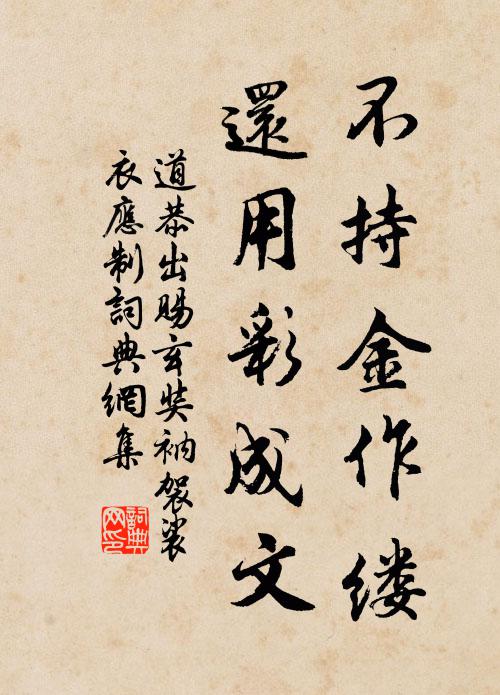 不持金作缕
還用彩成文
道恭出賜玄奘衲袈裟
衣應制詞典網集
詞典網印